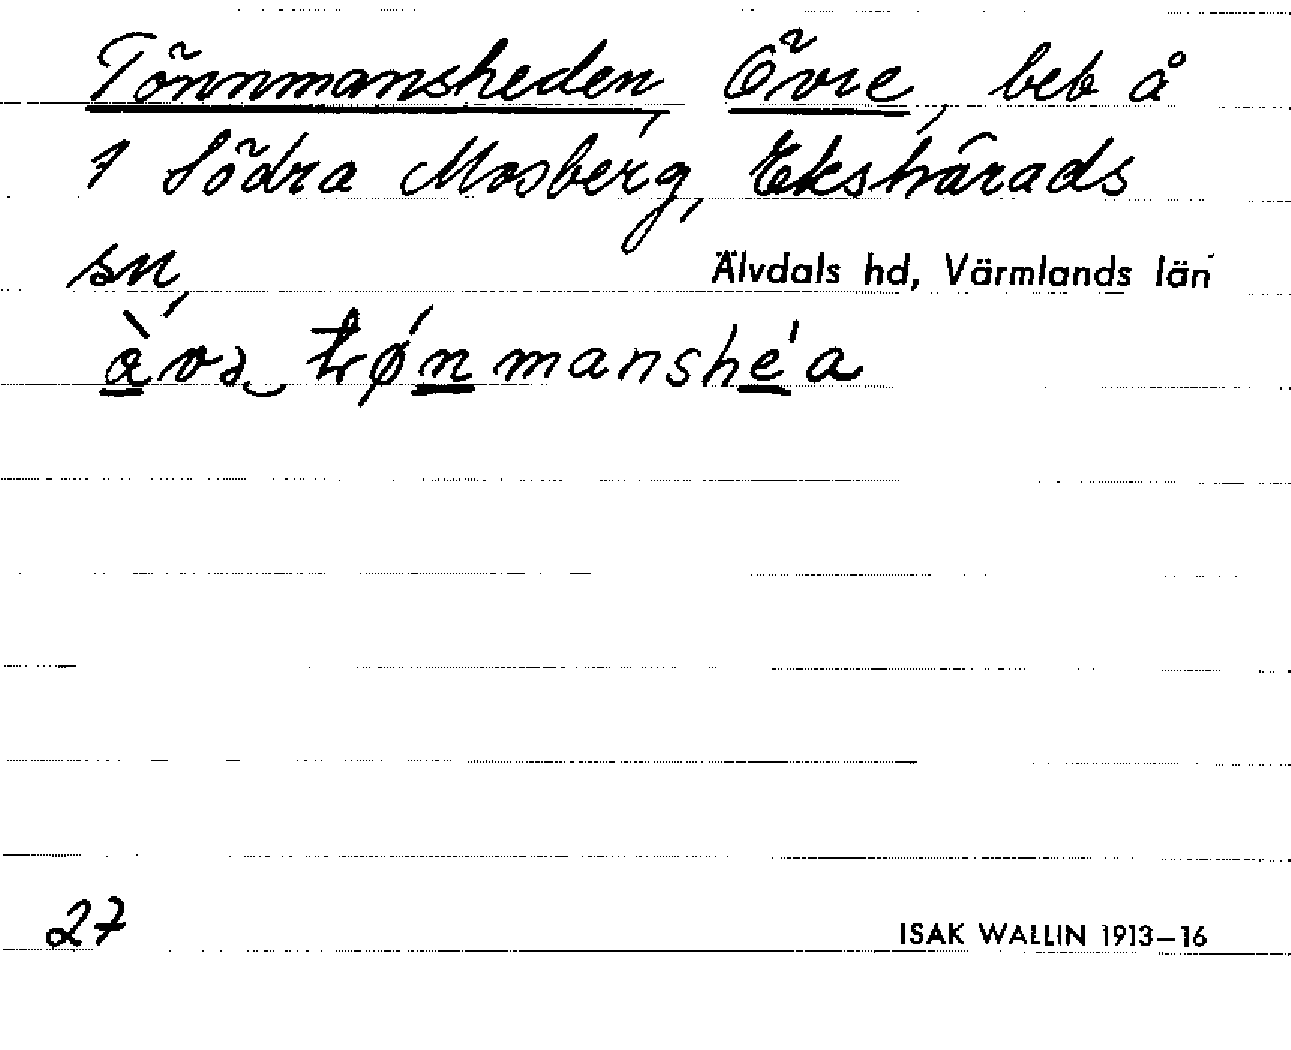 Tönnmansheden, Övre, beb å
1 Södra Mosberg, Ekshärads
sn, Älvdals hd, Värmlands län
27 ISAK WALLIN 1913–16